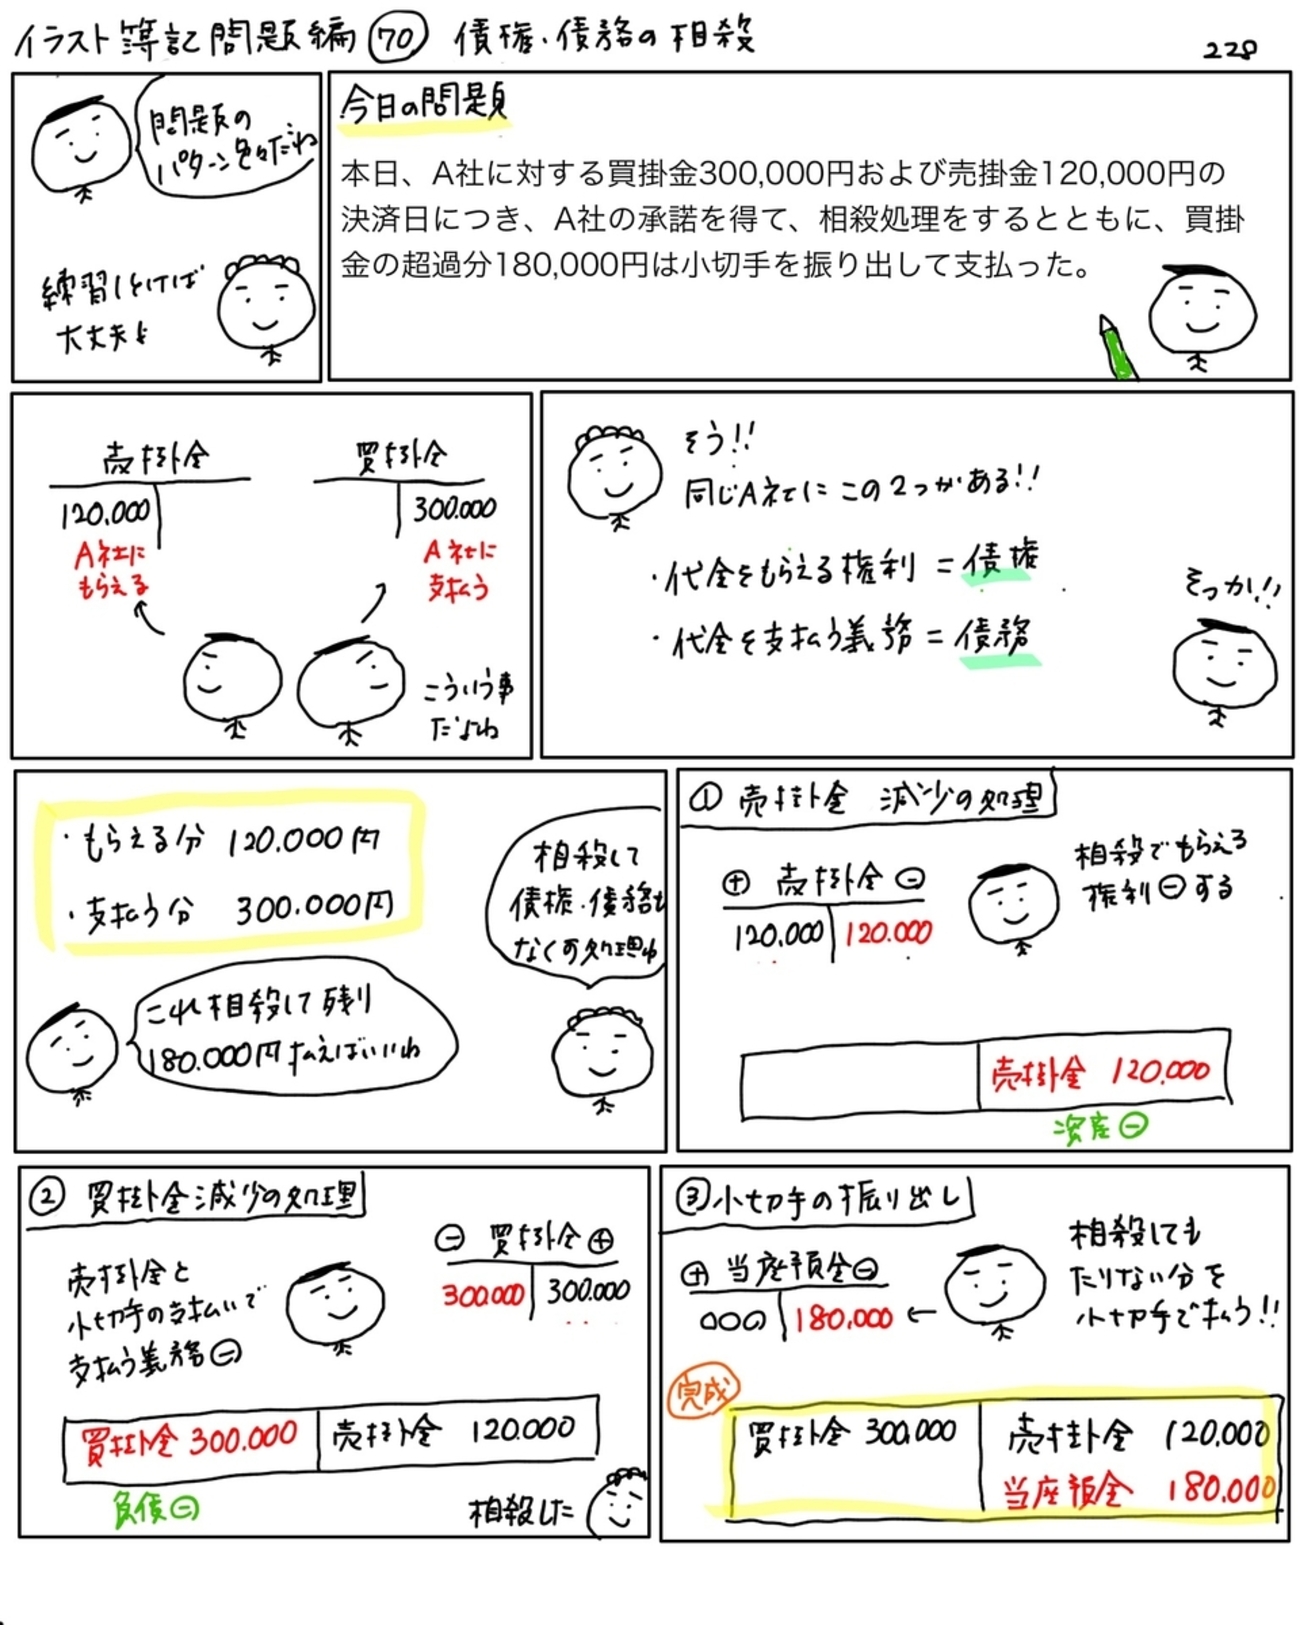 イラスト簿記問題編 70 債権・債務の相殺
228
問題の
パターン色々だね
練習しとけば
大丈夫よ
今日の問題
本日、A社に対する買掛金300,000円および売掛金120,000円の
決済日につき、A社の承諾を得て、相殺処理をするとともに、買掛
金の超過分180,000円は小切手を振り出して支払った。
売掛金
120.000
A社に
もらえる
買掛金
300.000
A社に
支払う
こういう事
だよね
そう!!
同じA社にこの2つがある!!
・代金をもらえる権利 = 債権
・代金を支払う義務 = 債務
そっか!!
・もらえる分 120.000円
・支払う分 300.000円
これ相殺して残り
180.000円払えばいいね
相殺して
債権・債務を
なくす処理ね
① 売掛金 減少の処理
⊕ 売掛金 ⊖
120.000 120.000
相殺でもらえる
権利⊖する
売掛金 120.000
資産⊖
② 買掛金減少の処理
売掛金と
小切手の支払いで
支払う義務⊖
⊖ 買掛金 ⊕
300.000 300.000
買掛金 300.000 売掛金 120.000
負債⊖
相殺した
③小切手の振り出し
⊕ 当座預金⊖
○○○ 180,000 ←
相殺しても
たりない分を
小切手で払う!!
完成
買掛金 300,000 売掛金 120.000
当座預金 180.000